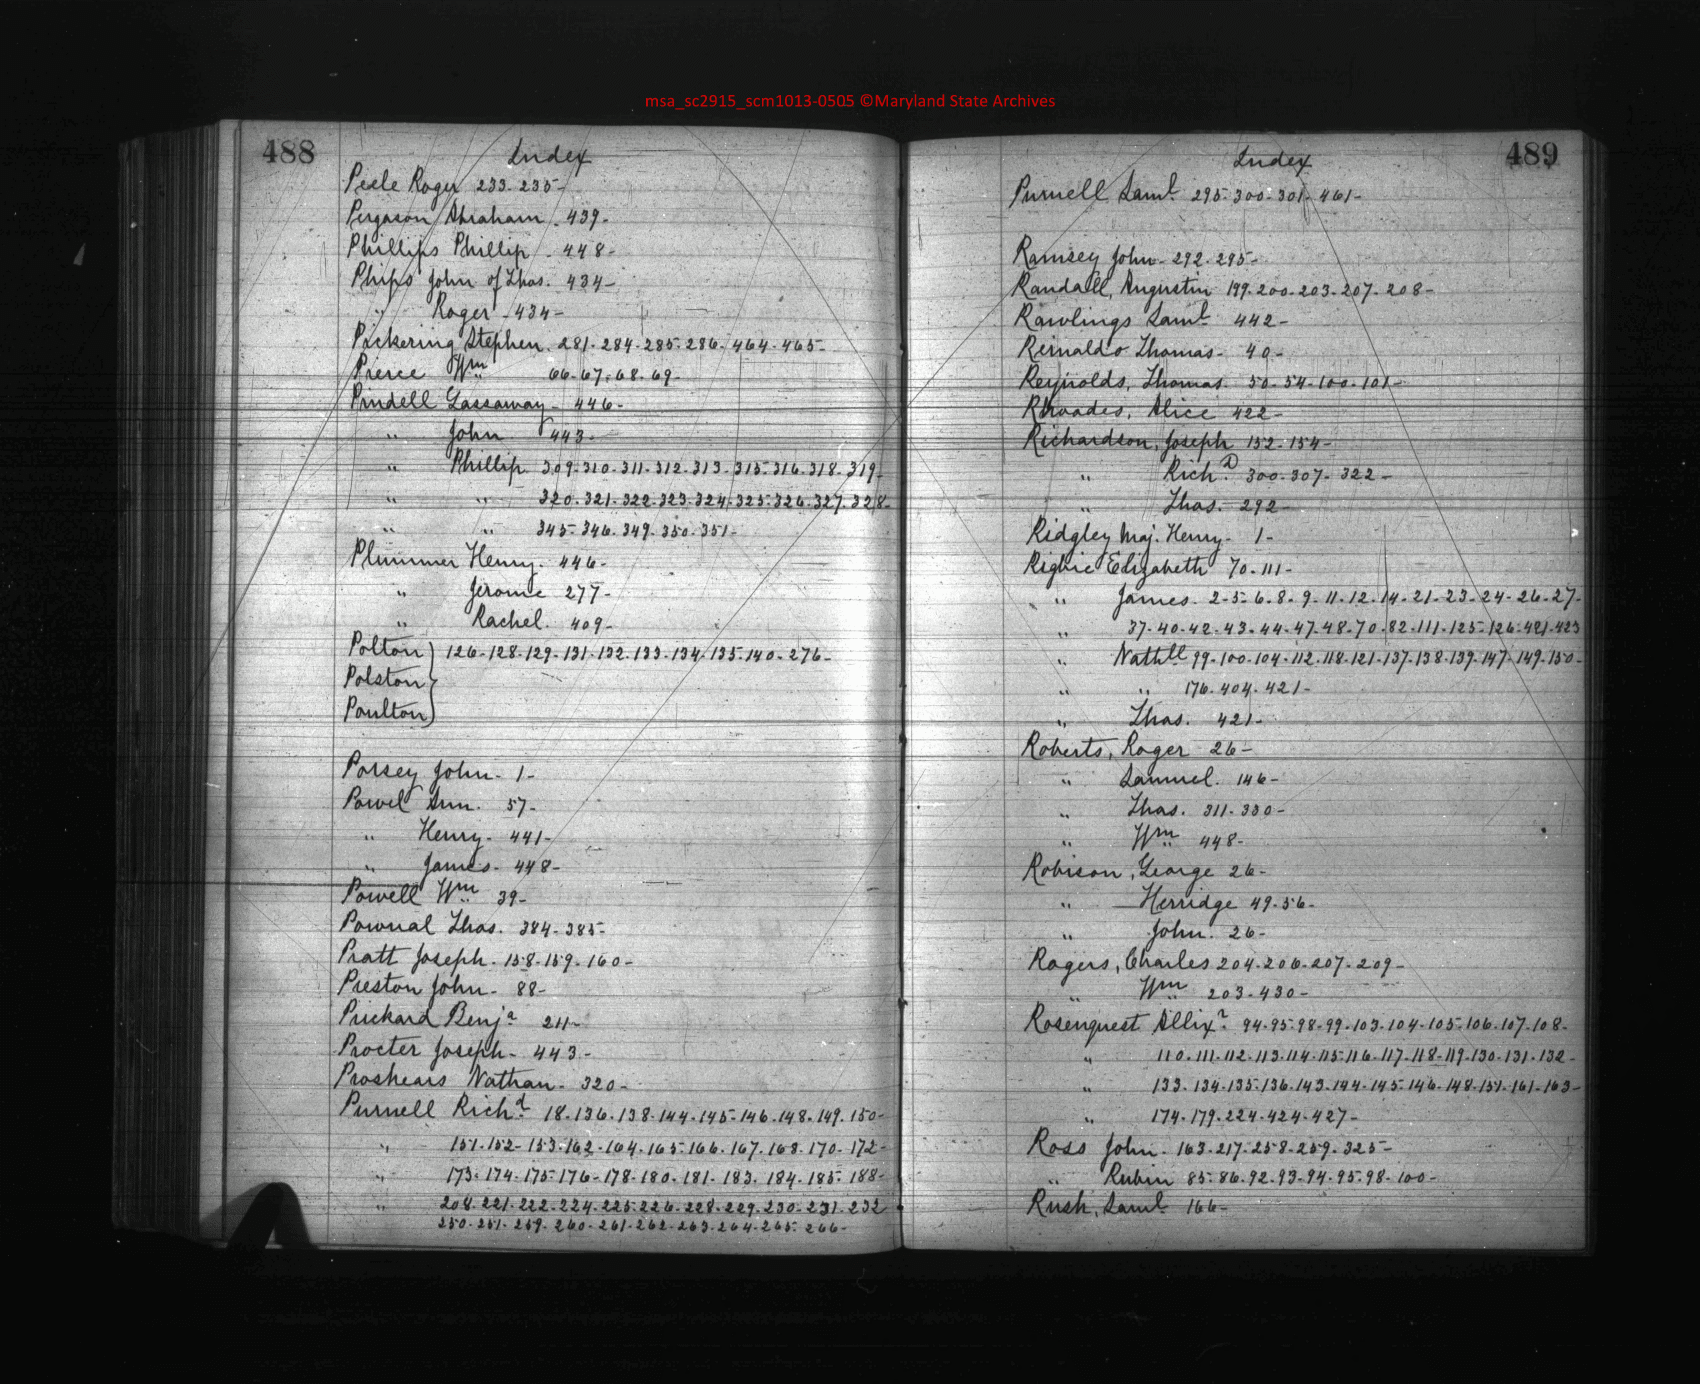 msa_sc2915_scm1013-0505 ©Maryland State Archives
488
Index
Peele Roger 233-235-
Pergason Abraham - 439-
Phillips Phillip - 448-
Phips John of Thos. 434-
" Roger - 434-
Pickering Stephen. 281-284-285-286-464-465-
Pierce Wm 66-67-68-69-
Pindell Gassaway - 446-
" John 443-
" Phillip 309-310-311-312-313-315-316-318-319-
" " 320-321-322-323-324-325-326-327-328-
" " 345-346-349-350-351-
Plummer Henry. 446-
" Jerome 277-
" Rachel. 409-
Polton } 126-128-129-131-132-133-134-135-140-276-
Polston }
Poulton }
Porsey John - 1-
Powel Ann. 57-
" Henry - 441-
" James - 448-
Powell Wm 39-
Pownal Thos. 384-385-
Pratt Joseph - 158-159-160-
Preston John - 88-
Prickard Benja 211-
Procter Joseph - 443-
Proshears Nathan - 320-
Purnell Richd 18-136-138-144-145-146-148-149-150-
" 151-152-153-162-164-165-166-167-168-170-172-
" 173-174-175-176-178-180-181-183-184-185-188-
" 208-221-222-224-225-226-228-229-230-231-232
250-251-259-260-261-262-263-264-265-266-
489
Index
Purnell Saml 295-300-301-461-
Ramsey John - 292-295-
Randall, Augustin 199-200-203-207-208-
Rawlings Saml 442-
Reinaldo Thomas - 40-
Reynolds, Thomas. 50-54-100-101-
Rhoades, Alice 422-
Richardson, Joseph 152-154-
" Richd 300-307-322-
" Thos. 292-
Ridgley Maj. Henry - 1-
Righie Elizabeth 70-111-
" James. 2-5-6-8-9-11-12-14-21-23-24-26-27-
" 37-40-42-43-44-47-48-70-82-111-125-126-421-423
" Nathll 99-100-104-112-118-121-137-138-139-147-149-150-
" " 176-404-421-
" Thos. 421-
Roberts, Roger 26-
" Samuel. 146-
" Thos. 311-330-
" Wm 448-
Robison, George 26-
" Herridge 49-56-
" John. 26-
Rogers, Charles 204-206-207-209-
" Wm 203-430-
Rosenquest Allixr 94-95-98-99-103-104-105-106-107-108-
" 110-111-112-113-114-115-116-117-118-119-130-131-132-
" 133-134-135-136-143-144-145-146-148-151-161-163-
" 174-179-224-424-427-
Ross John. 163-217-258-259-325-
" Rubin 85-86-92-93-94-95-98-100-
Rush, Saml 166-